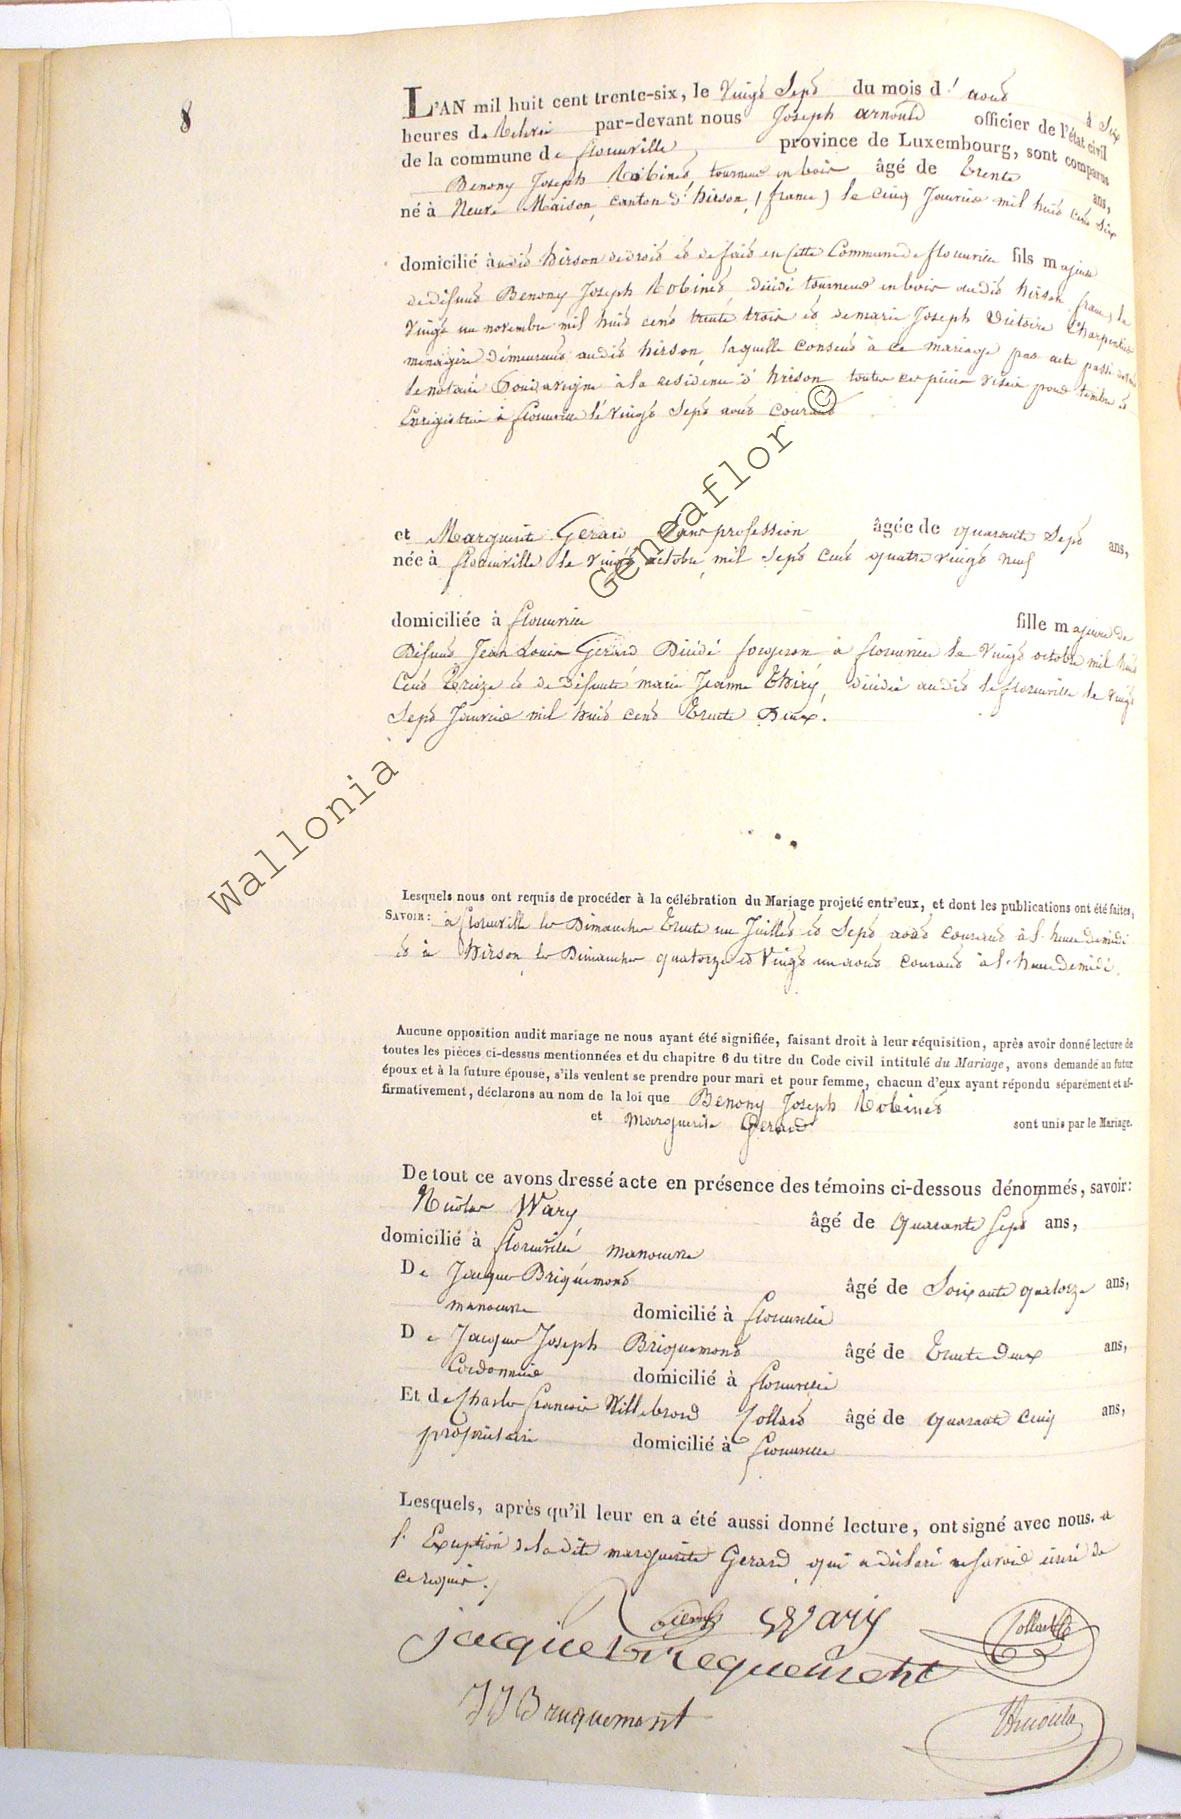 8
L'AN mil huit cent trente-six, le Vingt Sept du mois d'aout à Six
heures de Relevée par-devant nous Joseph arnould officier de l'état civil
de la commune de florenville, province de Luxembourg, sont comparus
Benony Joseph Robinet tourneur en bois âgé de trente ans,
né à Neuve Maison, canton d'hirson, (france) le cinq Janvier mil huit cent Six
domicilié audit hirson de droit et de fait en Cette Commune de florenville fils majeur
de défunt Benony Joseph Robinet décédé tourneur en bois audit hirson france le
Vingt un novembre mil huit cent trente trois et de marie Joseph Victoire Charpentier
menagère demeurant audit hirson, laquelle consent à ce mariage par acte passé devant
le notaire à la residence d'hirson toutes ces pièces visées pour timbre et
Enregistrées à florenville le vingt Sept aout courant
et Marguerite Gerard Sans profession âgée de quarante Sept ans,
née à florenville le vingt octobre mil Sept cent quatre vingt neuf
domiciliée à florenville fille majeure de
Défunt Jean Louis Gerard Décédé forgeron à florenville le Vingt octobre mil huit
Cent Treize et de Défunte marie Jeanne Thiry, décédée audit de florenville le vingt
Sept Janvier mil huit cent Trente Deux.
Lesquels nous ont requis de procéder à la célébration du Mariage projeté entr'eux, et dont les publications ont été faites,
SAVOIR: à florenville les Dimanches Trente un Juillet et Sept aout courant à l'heure de midi
et à hirson les Dimanches quatorze et Vingt un aout courant à l'heure de midi.
Aucune opposition audit mariage ne nous ayant été signifiée, faisant droit à leur réquisition, après avoir donné lecture de
toutes les pièces ci-dessus mentionnées et du chapitre 6 du titre du Code civil intitulé du Mariage, avons demandé au futur
époux et à la future épouse, s'ils veulent se prendre pour mari et pour femme, chacun d'eux ayant répondu séparément et af-
firmativement, déclarons au nom de la loi que Benony Joseph Robinet
et Marguerite Gerard sont unis par le Mariage.
De tout ce avons dressé acte en présence des témoins ci-dessous dénommés, savoir:
Nicolas Wary âgé de quarante Sept ans,
domicilié à florenville manouvre
De Jacques Briquemont âgé de Soixante quatorze ans,
manouvre domicilié à florenville
De Jacques Joseph Briquemont âgé de Trente Deux ans,
Cordonnier domicilié à florenville
Et de Charles francois Willebrord Collard âgé de quarante Cinq ans,
proprietaire domicilié à florenville
Lesquels, après qu'il leur en a été aussi donné lecture, ont signé avec nous. a
l'Exception de la dite marguerite Gerard qui a déclaré ne savoir écrire de
ce requis.
Wary
Collard
jacque Brequemont
JJ Bruquemont
Arnould
Wallonia Geneaflor ©